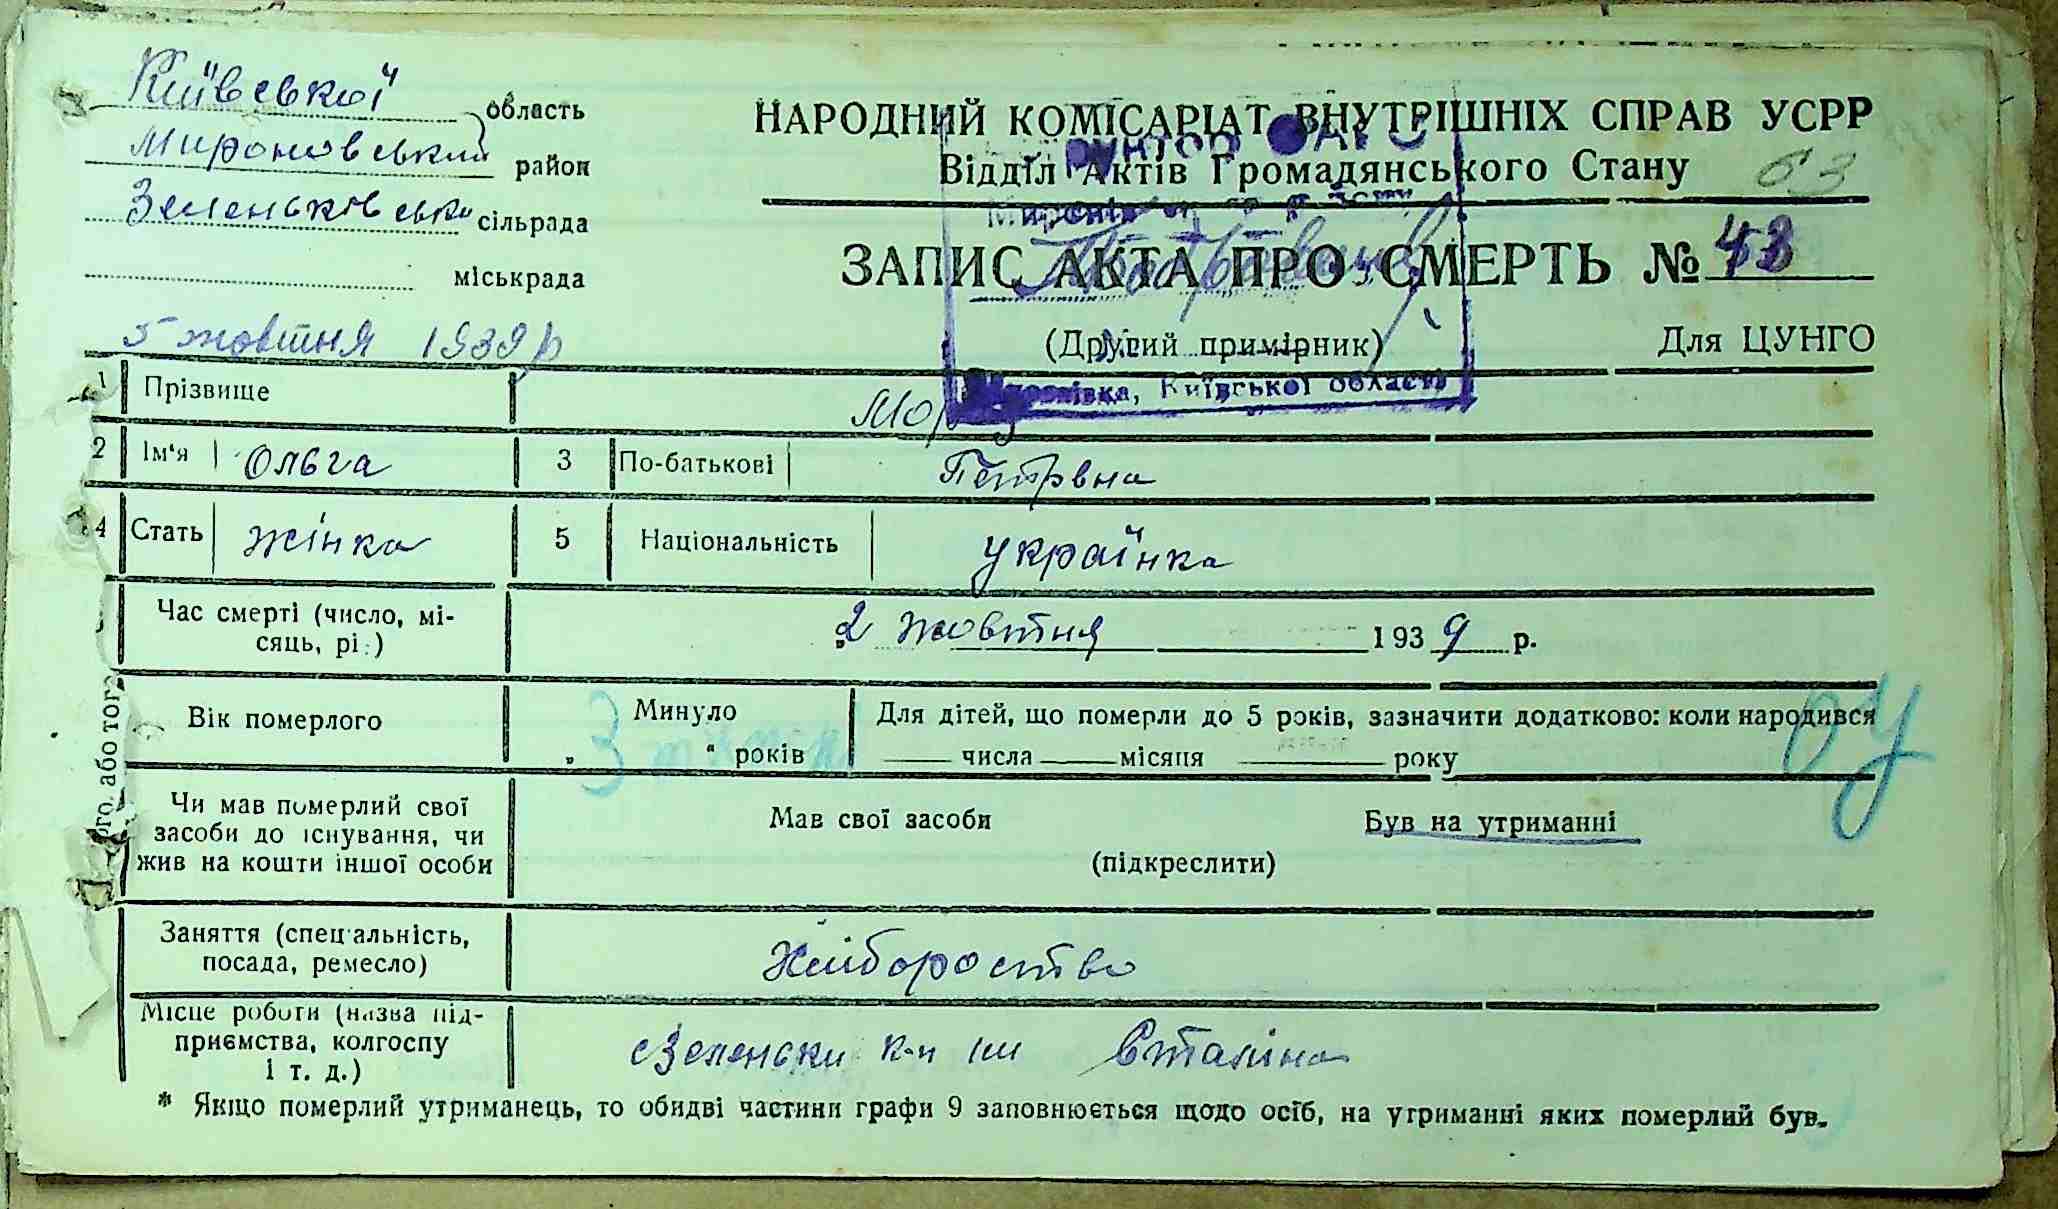 Київської область
Мироновський район
Зеленьківська сільрада
міськрада
5 жовтня 1939 р
НАРОДНИЙ КОМІСАРІАТ ВНУТРІШНІХ СПРАВ УСРР
Відділ Актів Громадянського Стану 63
ЗАПИС АКТА ПРО СМЕРТЬ №
(Другий примірник) Для ЦУНГО
Миронівка, Київської області
1 Прізвище
2 Ім'я Ольга 3 По-батькові Петрвна
4 Стать жінка 5 Національність українка
Час смерті (число, мі-
сяць, рі.) 2 жовтня 1939 р.
Вік померлого 3 Минуло
" " років
Для дітей, що померли до 5 років, зазначити додатково: коли народився
числа місяця року
ого, або того
Чи мав померлий свої
засоби до існування, чи
жив на кошти іншої особи
Мав свої засоби Був на утриманні
(підкреслити)
Заняття (спеціальність,
посада, ремесло) Хліборобство
Місце роботи (назва під-
приємства, колгоспу
і т. д.) Зеленьки к-п ім Сталіна
* Якщо померлий утриманець, то обидві частини графи 9 заповнюється щодо осіб, на утриманні яких померлий був.